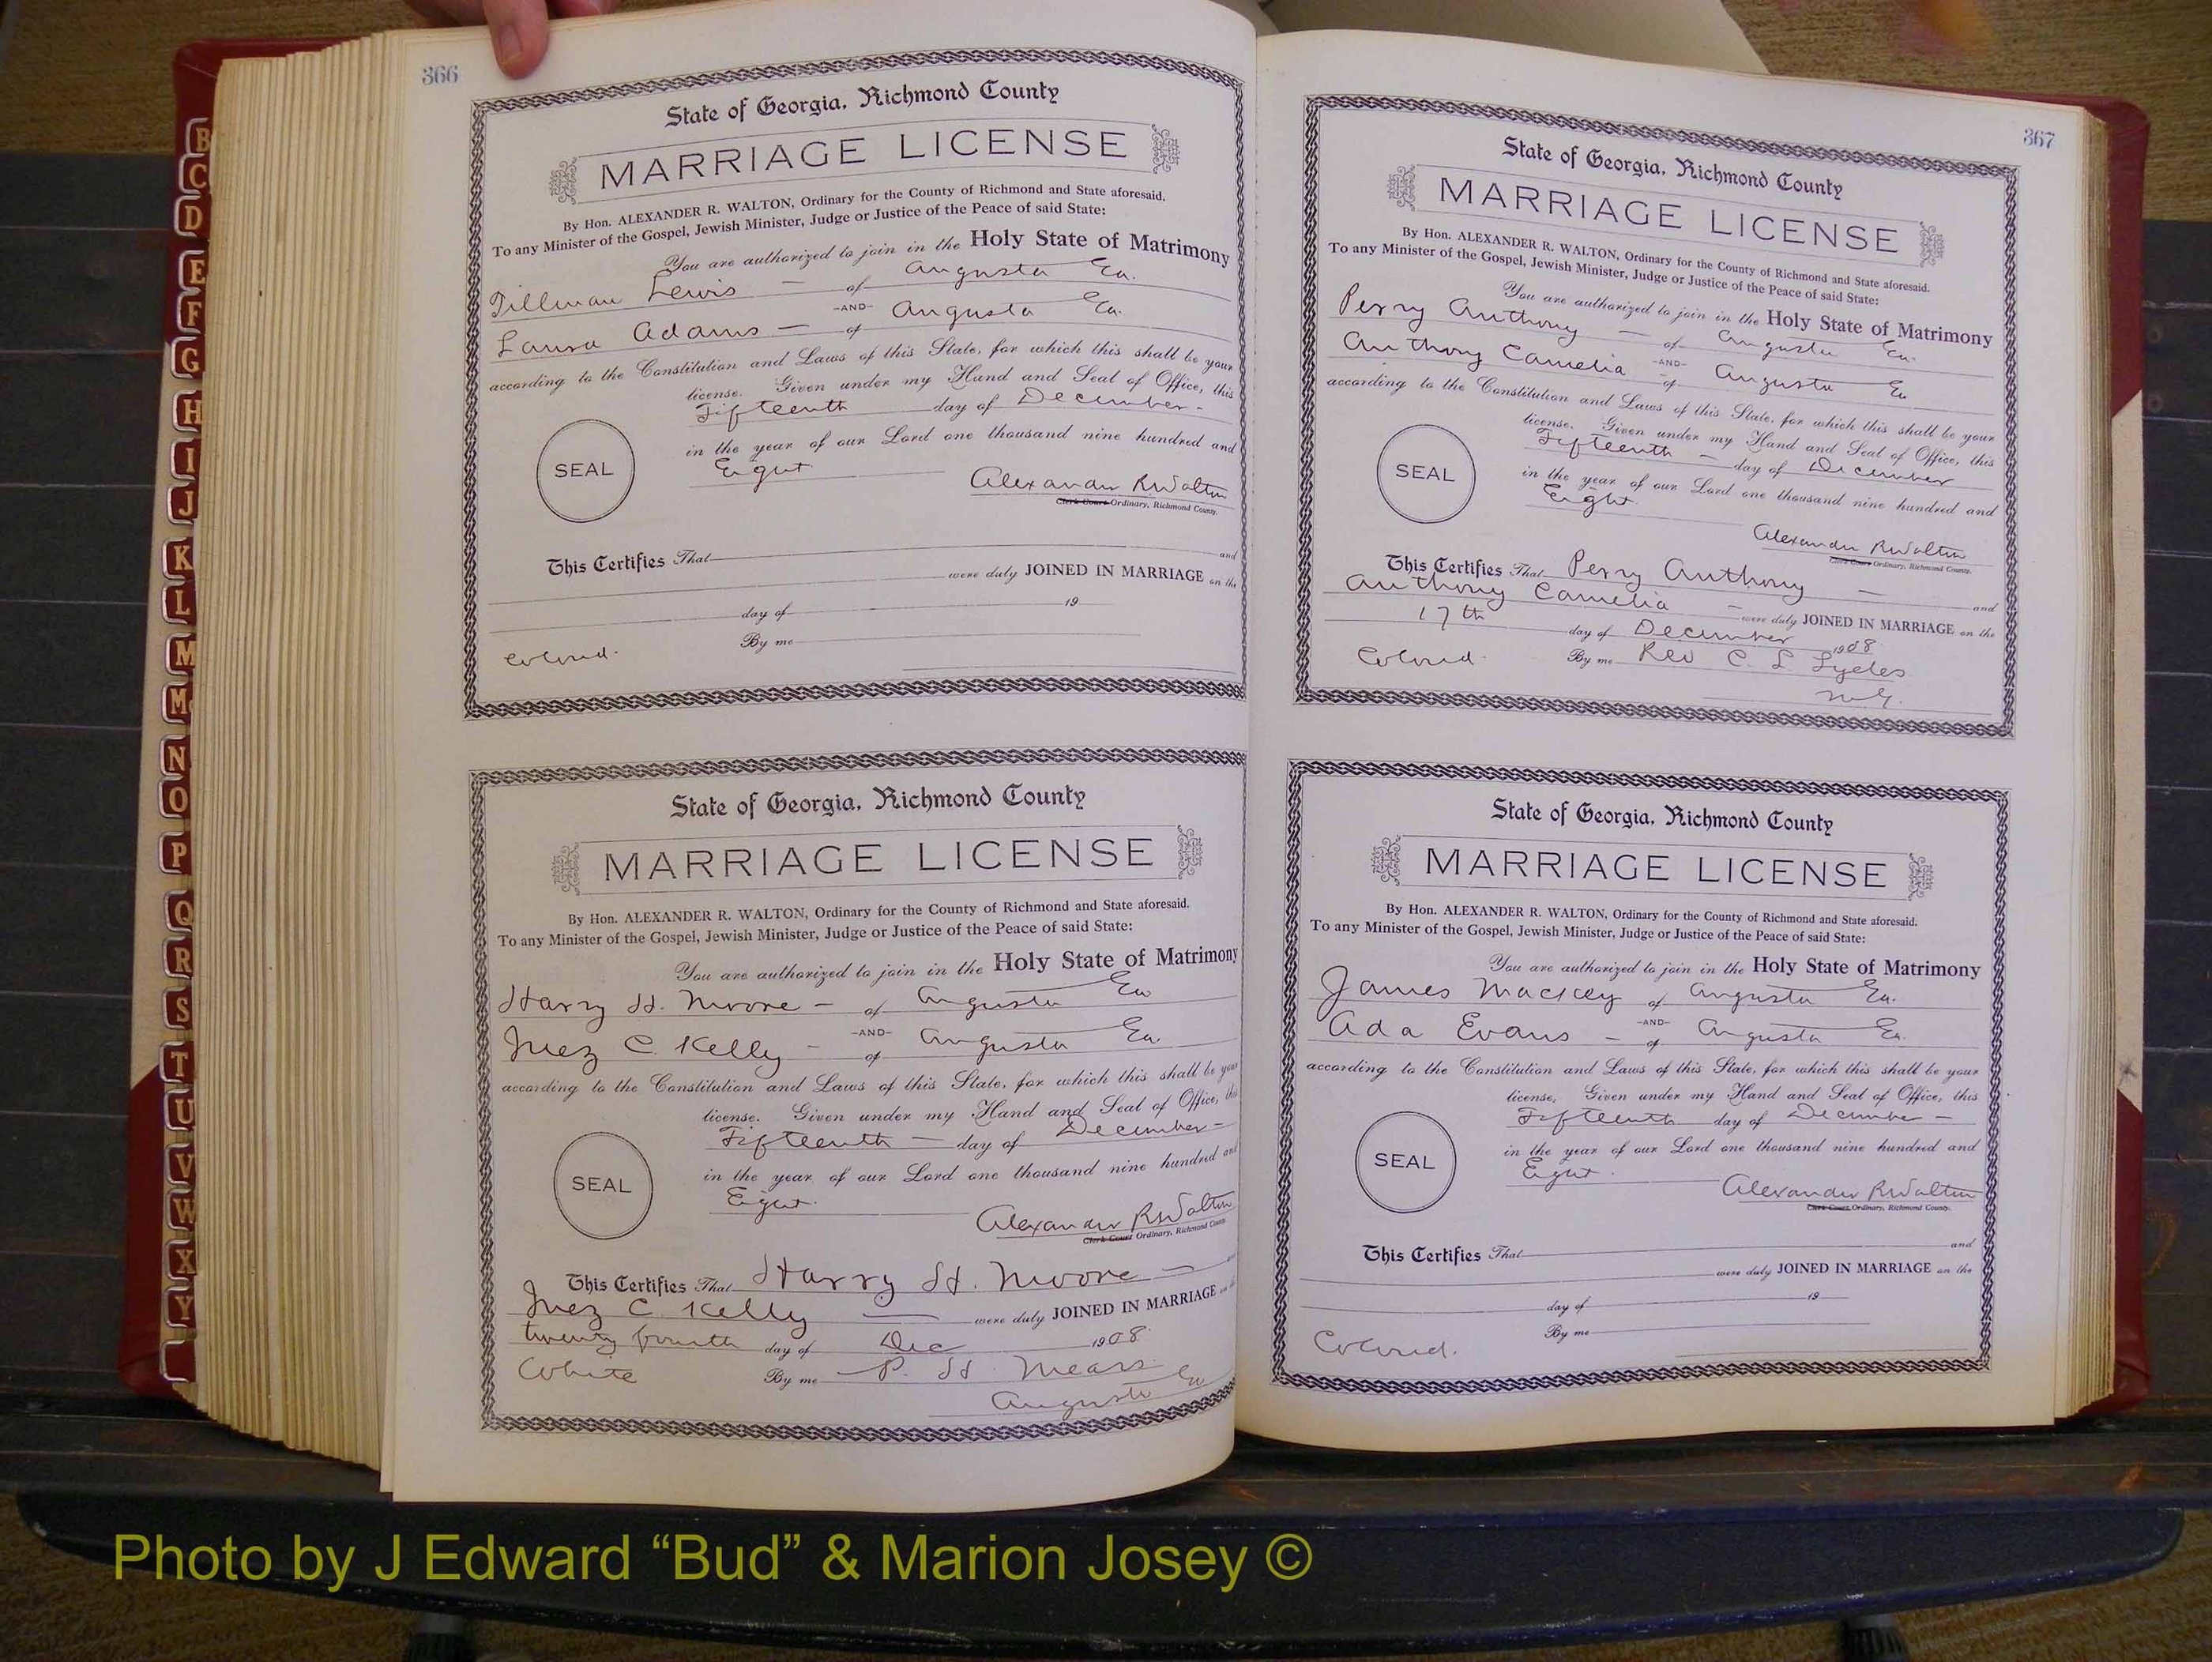 366
State of Georgia, Richmond County
MARRIAGE LICENSE
By Hon. ALEXANDER R. WALTON, Ordinary for the County of Richmond and State aforesaid.
To any Minister of the Gospel, Jewish Minister, Judge or Justice of the Peace of said State:
You are authorized to join in the Holy State of Matrimony
Tillman Lewis — of Augusta Ga.
-AND-
Laura Adams — of Augusta Ga.
according to the Constitution and Laws of this State, for which this shall be your
license. Given under my Hand and Seal of Office, this
Fifteenth day of December -
in the year of our Lord one thousand nine hundred and
Eight
SEAL
Alexander R Walton
Clerk Court Ordinary, Richmond County.
This Certifies That and
were duly JOINED IN MARRIAGE on the
day of 19
Colored. By me
State of Georgia, Richmond County
MARRIAGE LICENSE
By Hon. ALEXANDER R. WALTON, Ordinary for the County of Richmond and State aforesaid.
To any Minister of the Gospel, Jewish Minister, Judge or Justice of the Peace of said State:
You are authorized to join in the Holy State of Matrimony
Harry H. Moore - of Augusta Ga
-AND-
Inez C. Kelly - of Augusta Ga.
according to the Constitution and Laws of this State, for which this shall be your
license. Given under my Hand and Seal of Office, this
Fifteenth — day of December -
in the year of our Lord one thousand nine hundred and
Eight.
SEAL
Alexander R Walton
Clerk Court Ordinary, Richmond County
This Certifies That Harry H. Moore — and
Inez C. Kelly — were duly JOINED IN MARRIAGE on the
twenty fourth day of Dec 1908.
White By me P. H. Mears
Augusta Ga
367
State of Georgia, Richmond County
MARRIAGE LICENSE
By Hon. ALEXANDER R. WALTON, Ordinary for the County of Richmond and State aforesaid.
To any Minister of the Gospel, Jewish Minister, Judge or Justice of the Peace of said State:
You are authorized to join in the Holy State of Matrimony
Perry Anthony — of Augusta Ga.
-AND-
Anthony Camelia of Augusta Ga
according to the Constitution and Laws of this State, for which this shall be your
license. Given under my Hand and Seal of Office, this
Fifteenth — day of December
in the year of our Lord one thousand nine hundred and
Eight.
SEAL
Alexander R Walton
Clerk Court Ordinary, Richmond County.
This Certifies That Perry Anthony — and
Anthony Camelia — were duly JOINED IN MARRIAGE on the
17th day of December 1908
Colored. By me Rev C. L Lyeles
M.G.
State of Georgia, Richmond County
MARRIAGE LICENSE
By Hon. ALEXANDER R. WALTON, Ordinary for the County of Richmond and State aforesaid.
To any Minister of the Gospel, Jewish Minister, Judge or Justice of the Peace of said State:
You are authorized to join in the Holy State of Matrimony
James Mackey of Augusta Ga.
-AND-
Ada Evans - of Augusta Ga.
according to the Constitution and Laws of this State, for which this shall be your
license, Given under my Hand and Seal of Office, this
Fifteenth day of December -
in the year of our Lord one thousand nine hundred and
Eight.
SEAL
Alexander R Walton
Clerk Court, Ordinary, Richmond County.
This Certifies That and
were duly JOINED IN MARRIAGE on the
day of 19
Colored. By me
B
C
D
E
F
G
H
I
J
K
L
M
M
N
O
P
Q
R
S
T
U
V
W
X
Y
Photo by J Edward “Bud” & Marion Josey ©